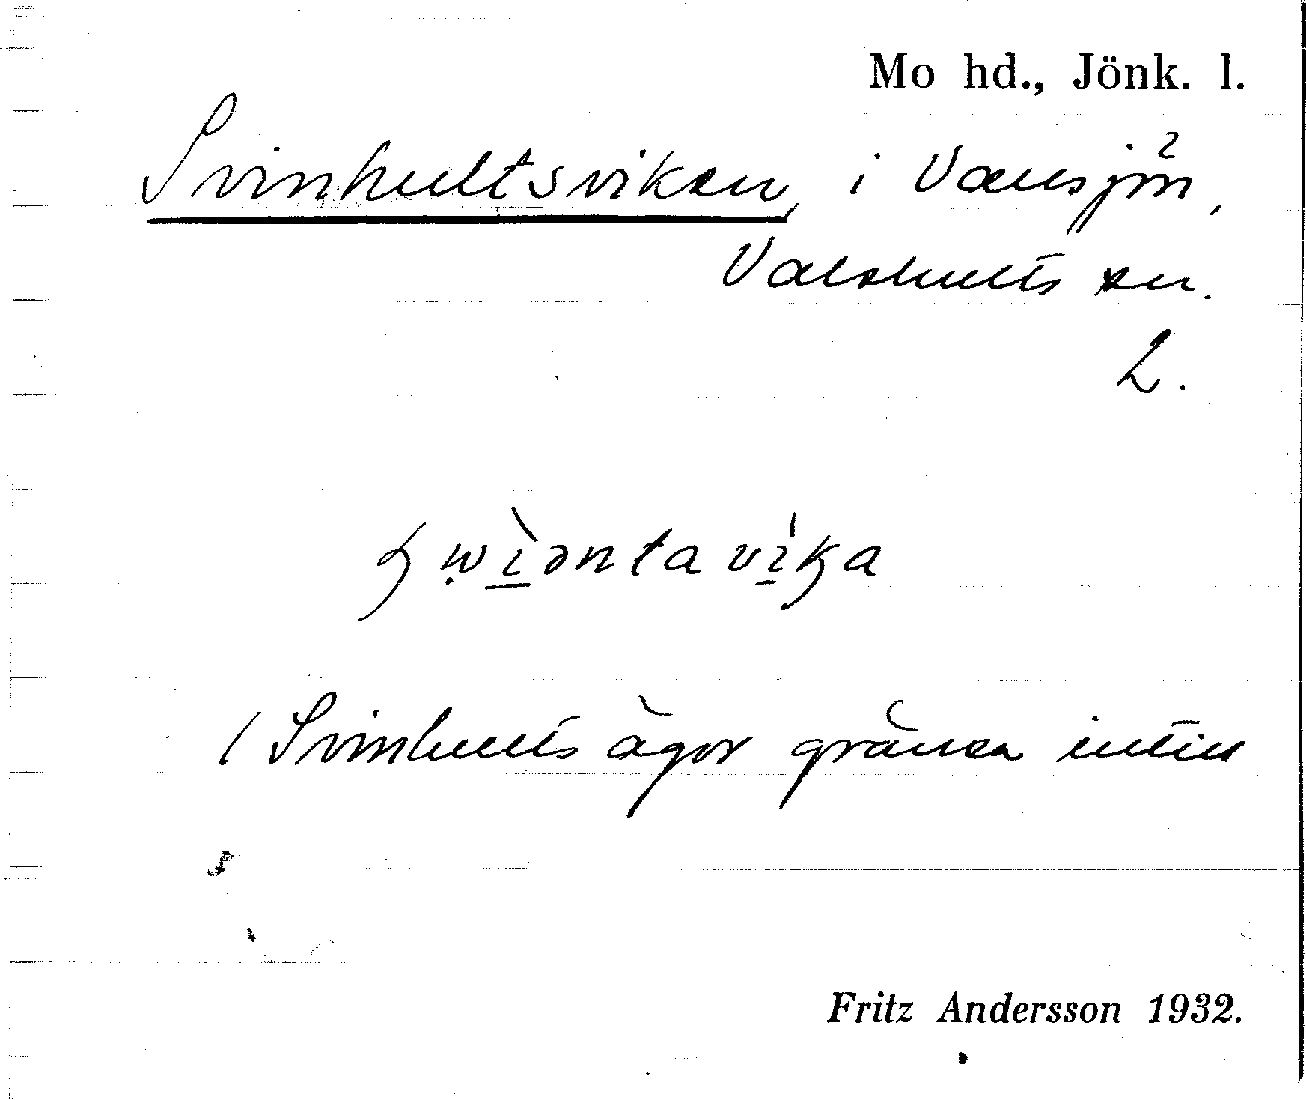 Mo hd., Jönk. l.
Svinhultsviken, i Vallsjön,
Valdshults sn.
2.
(Svinhults ägor gränsa intill
Fritz Andersson 1932.